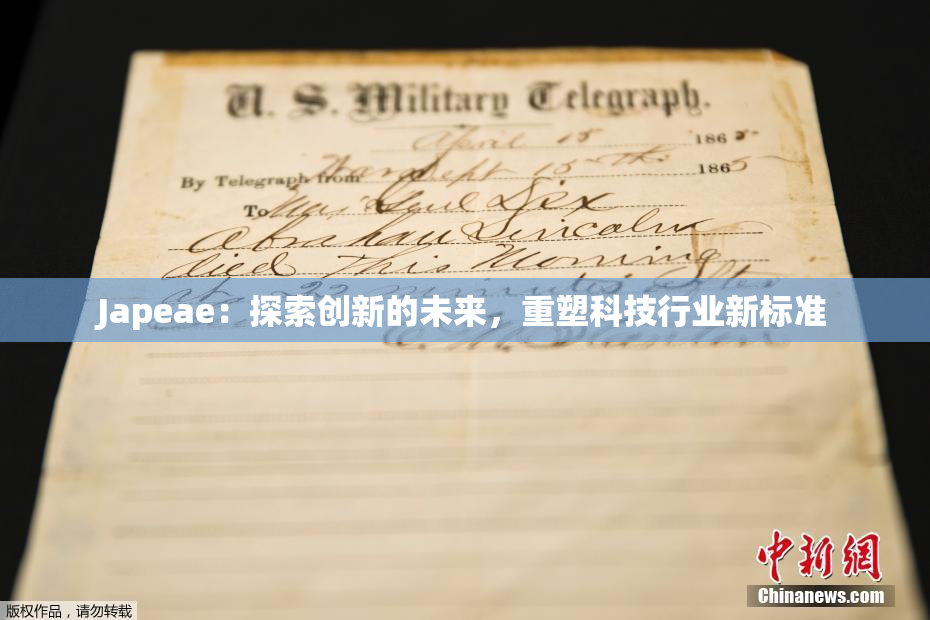 U. S. Military Telegraph.
April 15 1865
By Telegraph from War Dept 15th 1865
To Maj Genl Dix
Abraham Lincoln
died This Morning
at 22 minutes after
Japeae：探索创新的未来，重塑科技行业新标准
Stanton
中新网
Chinanews.com
版权作品，请勿转载